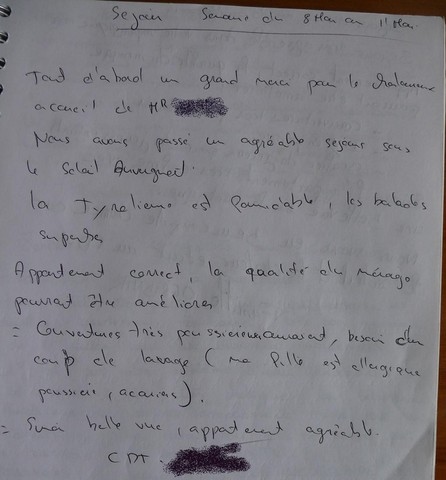 Séjour Semaine du 8 Mai au 11 Mai.
Tout d'abord un grand merci pour le chaleureux
accueil de MR
Nous avons passé un agréable sejour sous
le Soleil Auvergnat.
la Tyrolienne est formidable, les balades
superbes
Appartement correct, la qualité du ménage
pourrait être améliorée
= Couvertures très poussiéreuses, besoin d'un
coup de lavage (ma fille est allergique
poussière, acariens).
= Sinon belle vue, appartement agréable.
CDT.